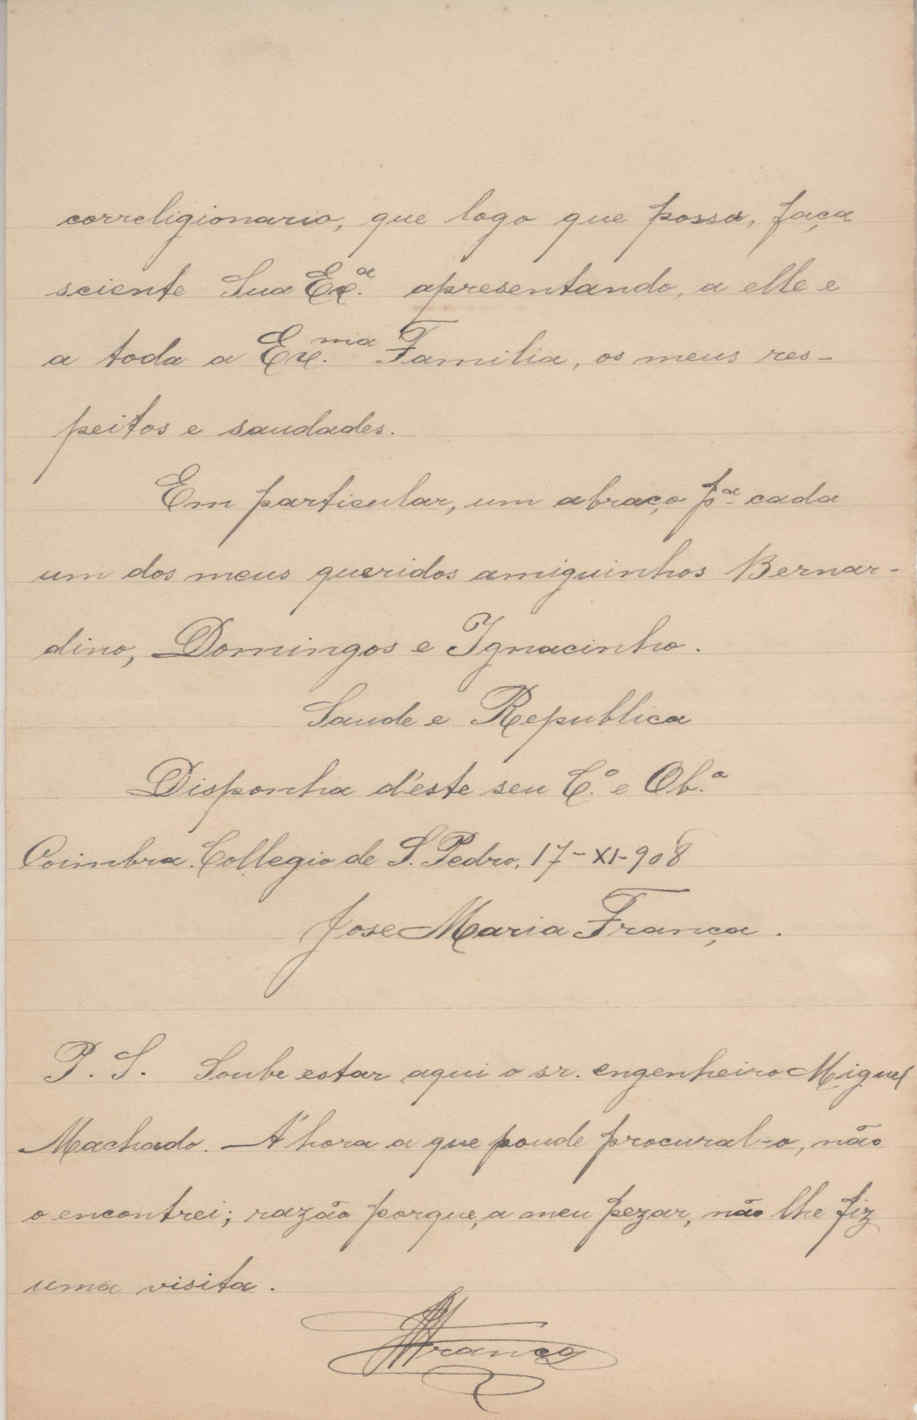 correligionario, que logo que possa, faça
sciente Sua Ex.ª apresentando, a elle e
a toda a Ex.ma Familia, os meus res-
peitos e saudades.
Em particular, um abraço pª cada
um dos meus queridos amiguinhos Bernar-
dino, Domingos e Ignacinho.
Saude e Republica
Disponha d'éste seu C.º e Ob.º
Coimbra. Collegio de S. Pedro, 17-XI-908
Jose Maria França.
P. S. Soube estar aqui o sr. engenheiro Miguel
Machado. A'hora a que poude procural-o, não
o encontrei; razão porque, a meu pezar, não lhe fiz
uma visita.
França